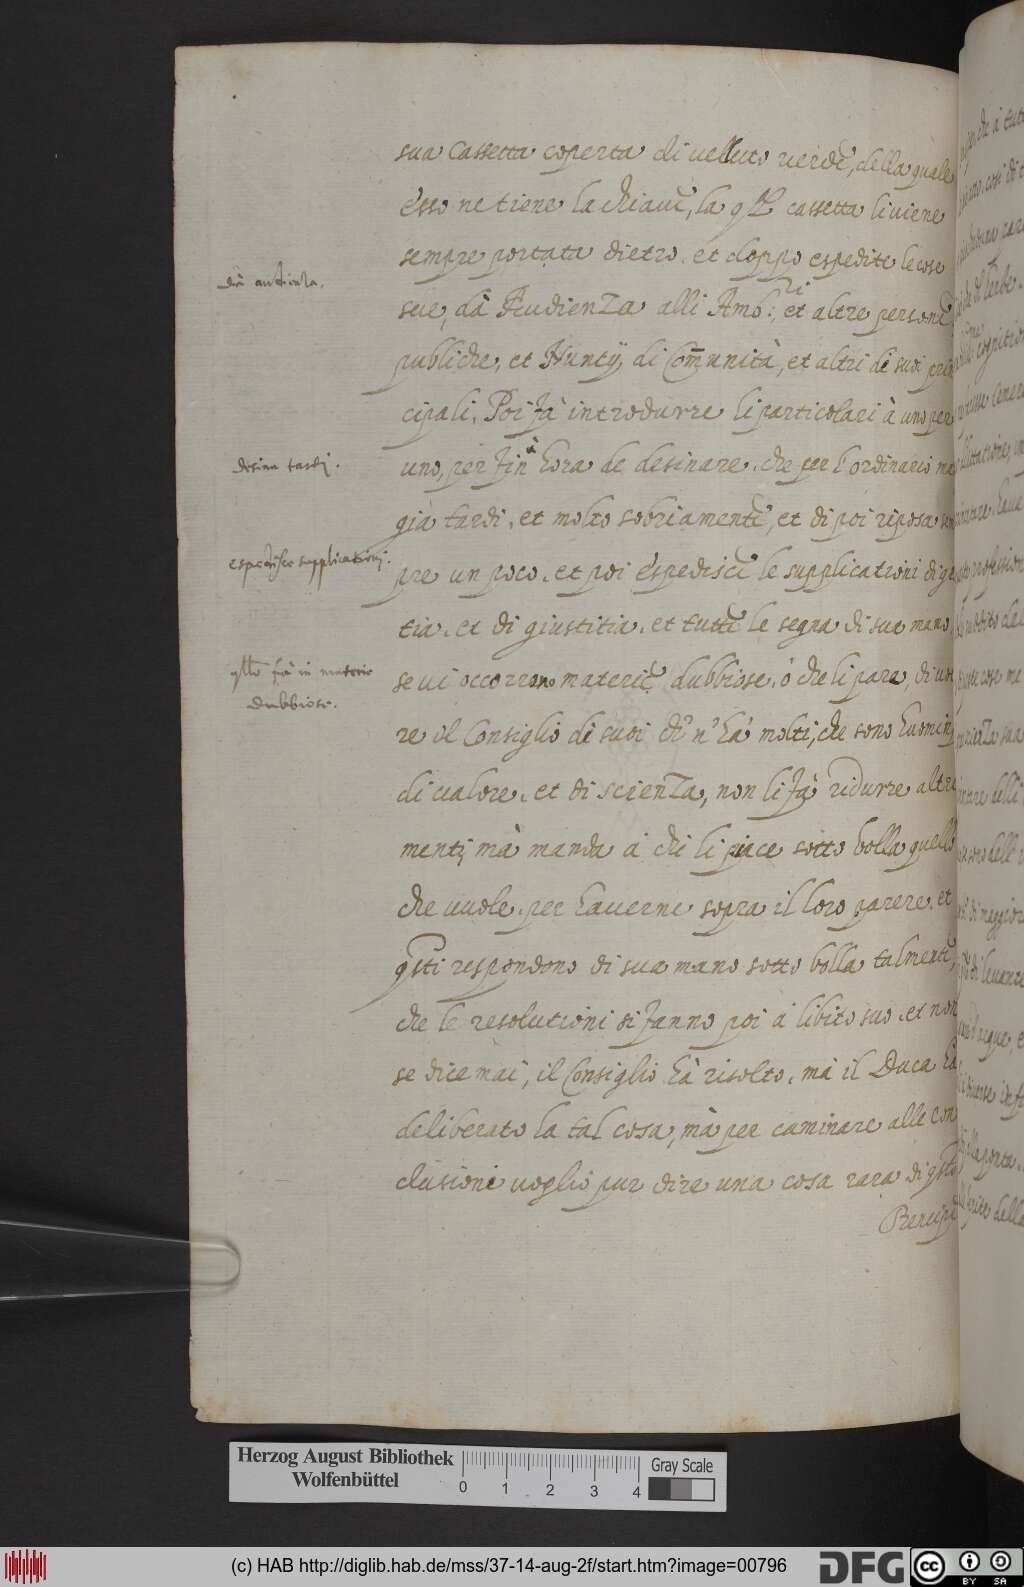 sua Cassetta coperta di velluto verde, della quale
esso ne tiene la chiave, la ql cassetta li viene
sempre portata dietro, et doppo espedite le cose
dà audienza.
sue, dà Audienza alli Amb.ri et altre persone
publiche, et Huntij di Comunità, et altri de suoi prin
cipali. Poi fà introdurre li particolari à uno per
desina tardi.
uno, per fin à hora de desinare, che per l'ordinario man
gia tardi, et molto sobriamente, et di poi riposa sem
espedisce supplicationi.
pre un poco, et poi espedisce le supplicationi di gra
tia, et di giustitia, et tutte le segna di sua mano,
se vi occorrano materie dubbiose, ò che li para, di usa
in materie
dubbiose.
re il Consiglio de suoi di n'hà molti, che sono huomini
di valore, et di scienza, non li fà ridurre altra
menti mà manda à chi li piace sotto bolla quello
che vuole, per haverne sopra il loro parere, et
qsti respondono di sua mano sotto bolla talmente,
che le resolutioni si fanno poi à libito suo, et non
se dice mai, il Consiglio hà risolto, mà il Duca hà
deliberato la tal cosa, mà per caminare alle con
clusioni voglio pur dire una cosa rara di qsto
Prencipe
Herzog August Bibliothek
Wolfenbüttel
0 1 2 3 4
Gray Scale
(c) HAB http://diglib.hab.de/mss/37-14-aug-2f/start.htm?image=00796
DFG
cc BY SA